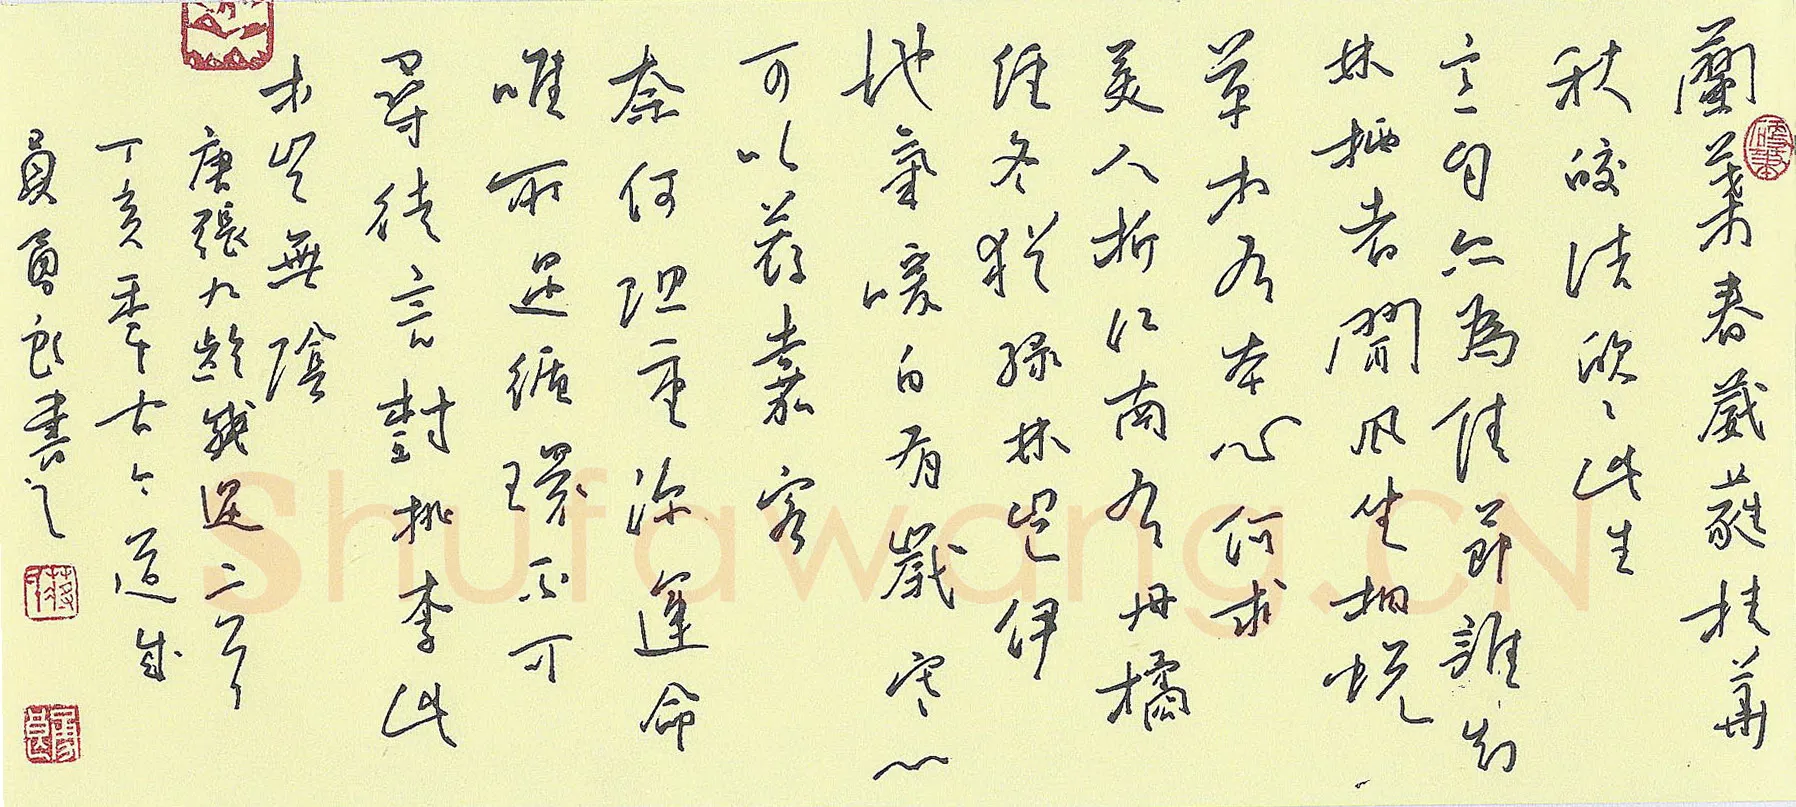 蘭葉春葳蕤桂華
秋皎洁欣〻此生
意自尔為佳節誰知
林栖者聞風坐相悦
草木有本心何求
美人折江南有丹橘
经冬犹绿林豈伊
地氣暖自有歲寒心
可以薦嘉客
奈何阻重深運命
唯所遇循環不可
尋徒言樹桃李此
木豈無陰
唐張九齡感遇二首
丁亥
書之
Shufawang.CN